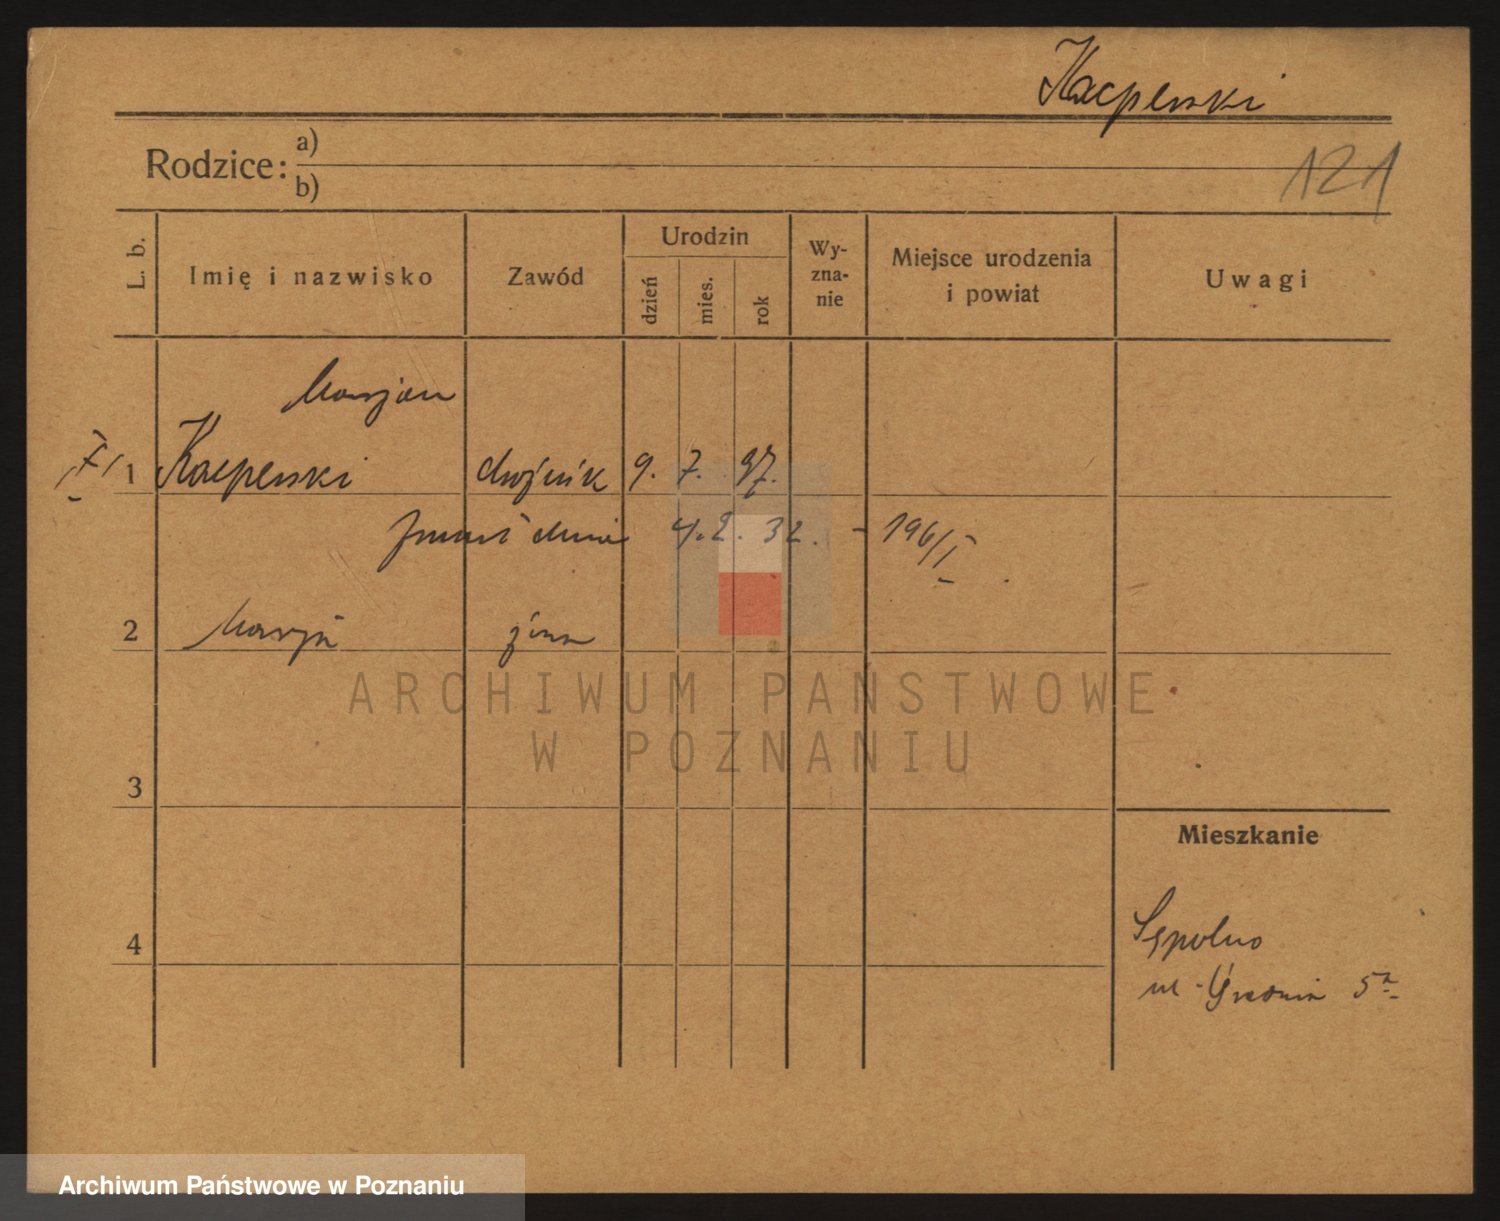 Kacperski
Rodzice: a)
b)
121
L. b.
Imię i nazwisko
Zawód
Urodzin
dzień
mies.
rok
Wy-
zna-
nie
Miejsce urodzenia
i powiat
Uwagi
Marjan
1 Kacperski 9. 7. 97.
zmarł dnia 4. 2. 32. - 196/I
2 Marja żona
3
4
Mieszkanie
Sępolno
ul. Średnia 5a
ARCHIWUM PAŃSTWOWE
W POZNANIU
Archiwum Państwowe w Poznaniu